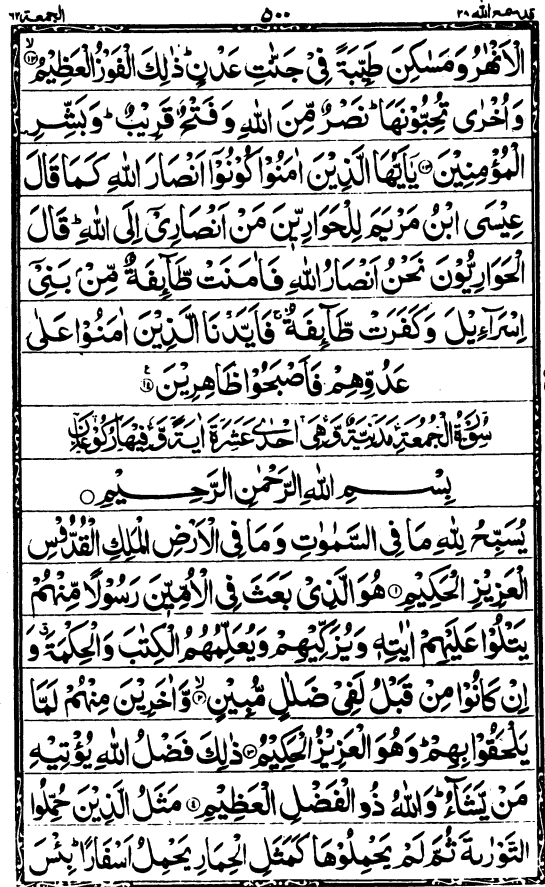 قد سمع الله ٢٨ ٥٠٠ الجمعة ٦٢
الْاَنْهٰرُ وَمَسٰكِنَ طَيِّبَةً فِيْ جَنّٰتِ عَدْنٍ ؕ ذٰلِكَ الْفَوْزُ الْعَظِيْمُ ۙ﴿١٢﴾
وَاُخْرٰى تُحِبُّوْنَهَا ؕ نَصْرٌ مِّنَ اللّٰهِ وَفَتْحٌ قَرِيْبٌ ؕ وَبَشِّرِ
الْمُؤْمِنِيْنَ ﴿١٣﴾ يٰۤاَيُّهَا الَّذِيْنَ اٰمَنُوْا كُوْنُوْۤا اَنْصَارَ اللّٰهِ كَمَا قَالَ
عِيْسَى ابْنُ مَرْيَمَ لِلْحَوَارِيّٖنَ مَنْ اَنْصَارِيْۤ اِلَى اللّٰهِ ؕ قَالَ
الْحَوَارِيُّوْنَ نَحْنُ اَنْصَارُ اللّٰهِ فَاٰمَنَتْ طَّآىِٕفَةٌ مِّنْۢ بَنِيْۤ
اِسْرَآءِيْلَ وَكَفَرَتْ طَّآىِٕفَةٌ ۚ فَاَيَّدْنَا الَّذِيْنَ اٰمَنُوْا عَلٰى
عَدُوِّهِمْ فَاَصْبَحُوْا ظَاهِرِيْنَ ﴿١٤﴾
سُوْرَةُ الْجُمُعَةِ مَدَنِيَّةٌ وَّهِيَ اِحْدٰى عَشَرَةَ اٰيَةً وَّفِيْهَا رُكُوْعَانِ
بِسْمِ اللّٰهِ الرَّحْمٰنِ الرَّحِيْمِ ○
يُسَبِّحُ لِلّٰهِ مَا فِي السَّمٰوٰتِ وَمَا فِي الْاَرْضِ الْمَلِكِ الْقُدُّوْسِ
الْعَزِيْزِ الْحَكِيْمِ ﴿١﴾ هُوَ الَّذِيْ بَعَثَ فِي الْاُمِّيّٖنَ رَسُوْلًا مِّنْهُمْ
يَتْلُوْا عَلَيْهِمْ اٰيٰتِهٖ وَيُزَكِّيْهِمْ وَيُعَلِّمُهُمُ الْكِتٰبَ وَالْحِكْمَةَ ۗ وَ
اِنْ كَانُوْا مِنْ قَبْلُ لَفِيْ ضَلٰلٍ مُّبِيْنٍ ۙ﴿٢﴾ وَّاٰخَرِيْنَ مِنْهُمْ لَمَّا
يَلْحَقُوْا بِهِمْ ؕ وَهُوَ الْعَزِيْزُ الْحَكِيْمُ ﴿٣﴾ ذٰلِكَ فَضْلُ اللّٰهِ يُؤْتِيْهِ
مَنْ يَّشَآءُ ؕ وَاللّٰهُ ذُو الْفَضْلِ الْعَظِيْمِ ﴿٤﴾ مَثَلُ الَّذِيْنَ حُمِّلُوا
التَّوْرٰىةَ ثُمَّ لَمْ يَحْمِلُوْهَا كَمَثَلِ الْحِمَارِ يَحْمِلُ اَسْفَارًا ؕ بِئْسَ